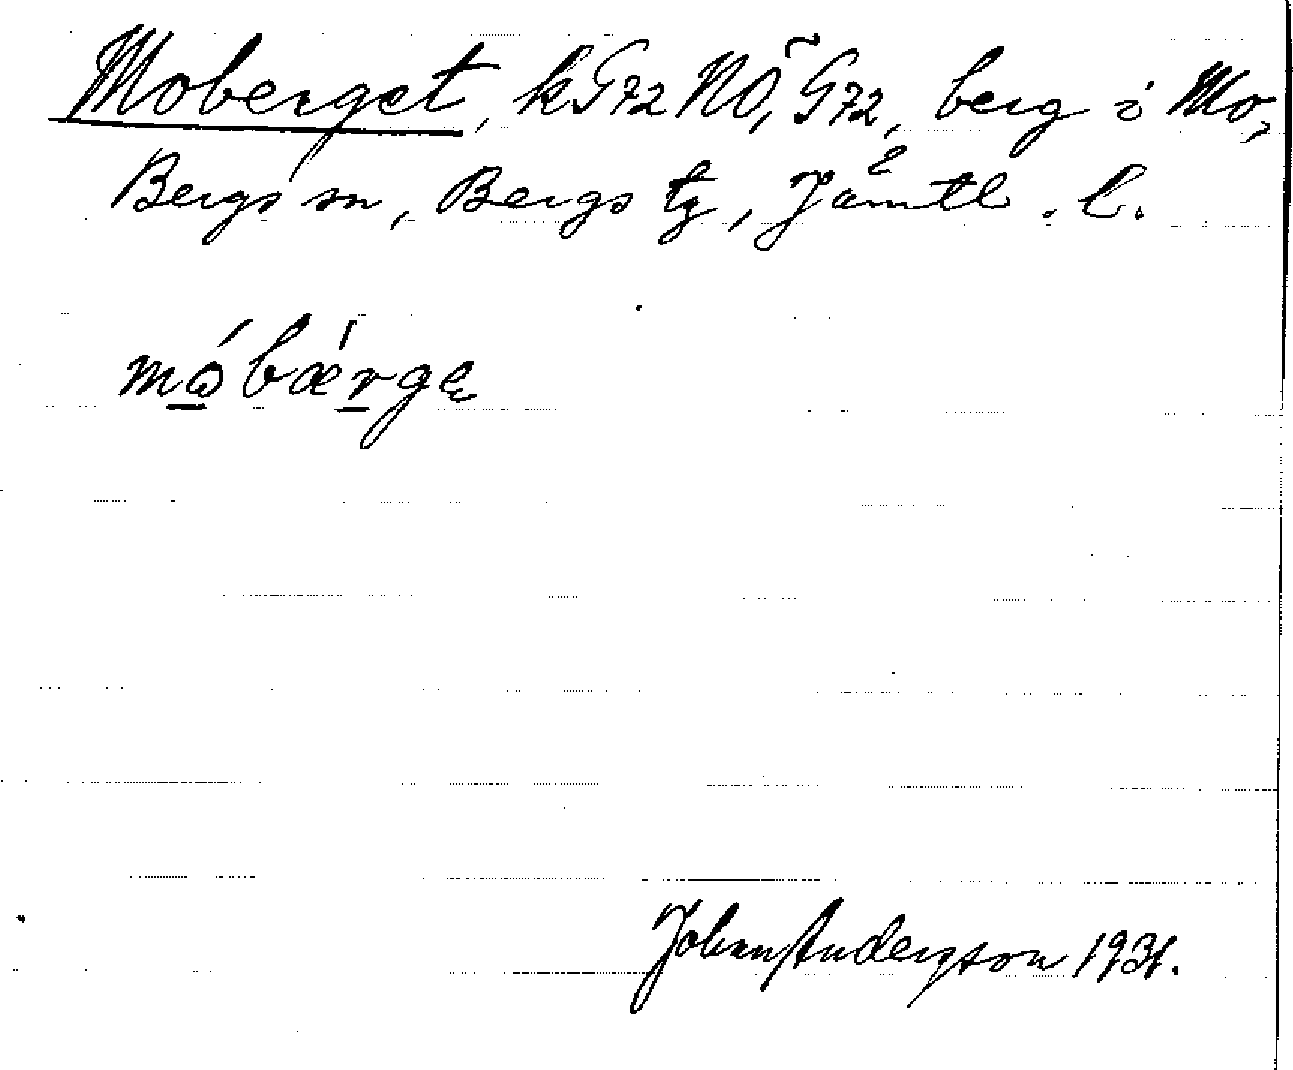 Moberget, kG72NÖ, G72, berg i Mo,
Bergs sn, Bergs tg, Jämtl. l.
mɷ́bǽrgę
Johan Anderson 1931.